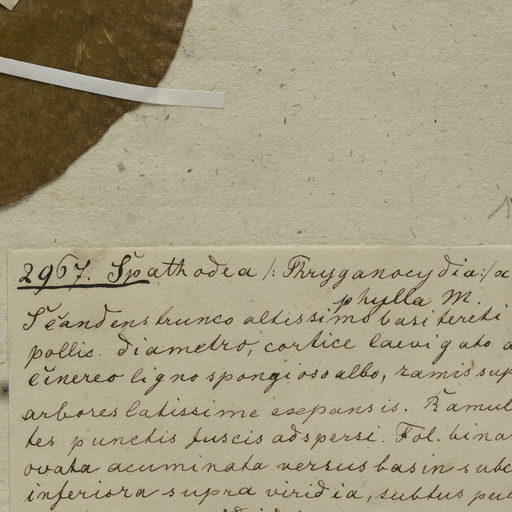 2967. Spathodea /: Phryganocydia :/ a
phylla M.
Scandens trunco altissimo basi tereti
pollic. diametro, cortice laevigato a
cinereo ligno spongioso albo, ramis sup
arbores latissime expansis. Ramul
tes punctis fuscis adspersi. Fol. bina
ovata acuminata versus basin subc
inferiora supra viridia, subtus pub